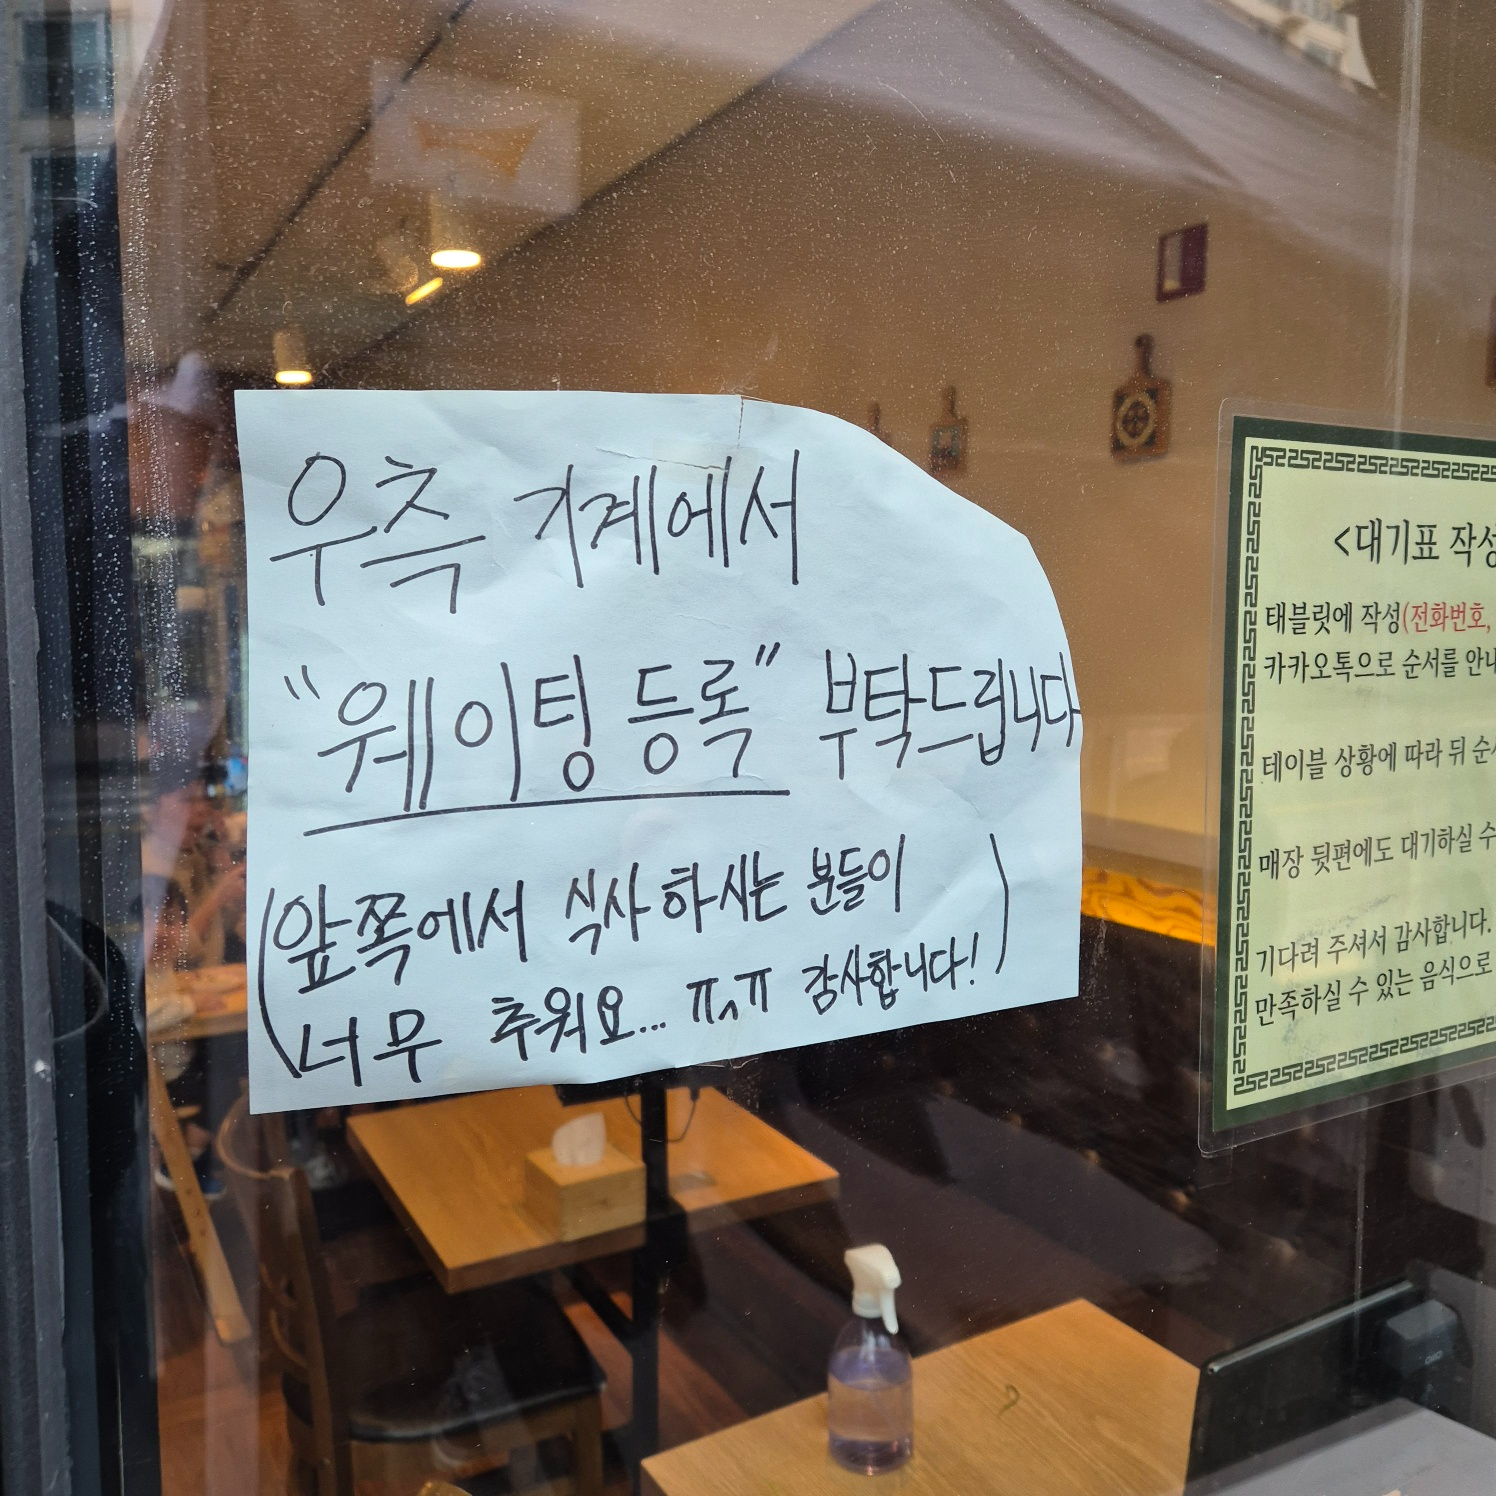 우측 기계에서
"웨이팅 등록" 부탁드립니다
(앞쪽에서 식사하시는 분들이
너무 추워요... ㅠ^ㅠ 감사합니다!)
<대기표 작성
태블릿에 작성(전화번호,
카카오톡으로 순서를 안내
테이블 상황에 따라 뒤 순서
매장 뒷편에도 대기하실 수
기다려 주셔서 감사합니다.
만족하실 수 있는 음식으로